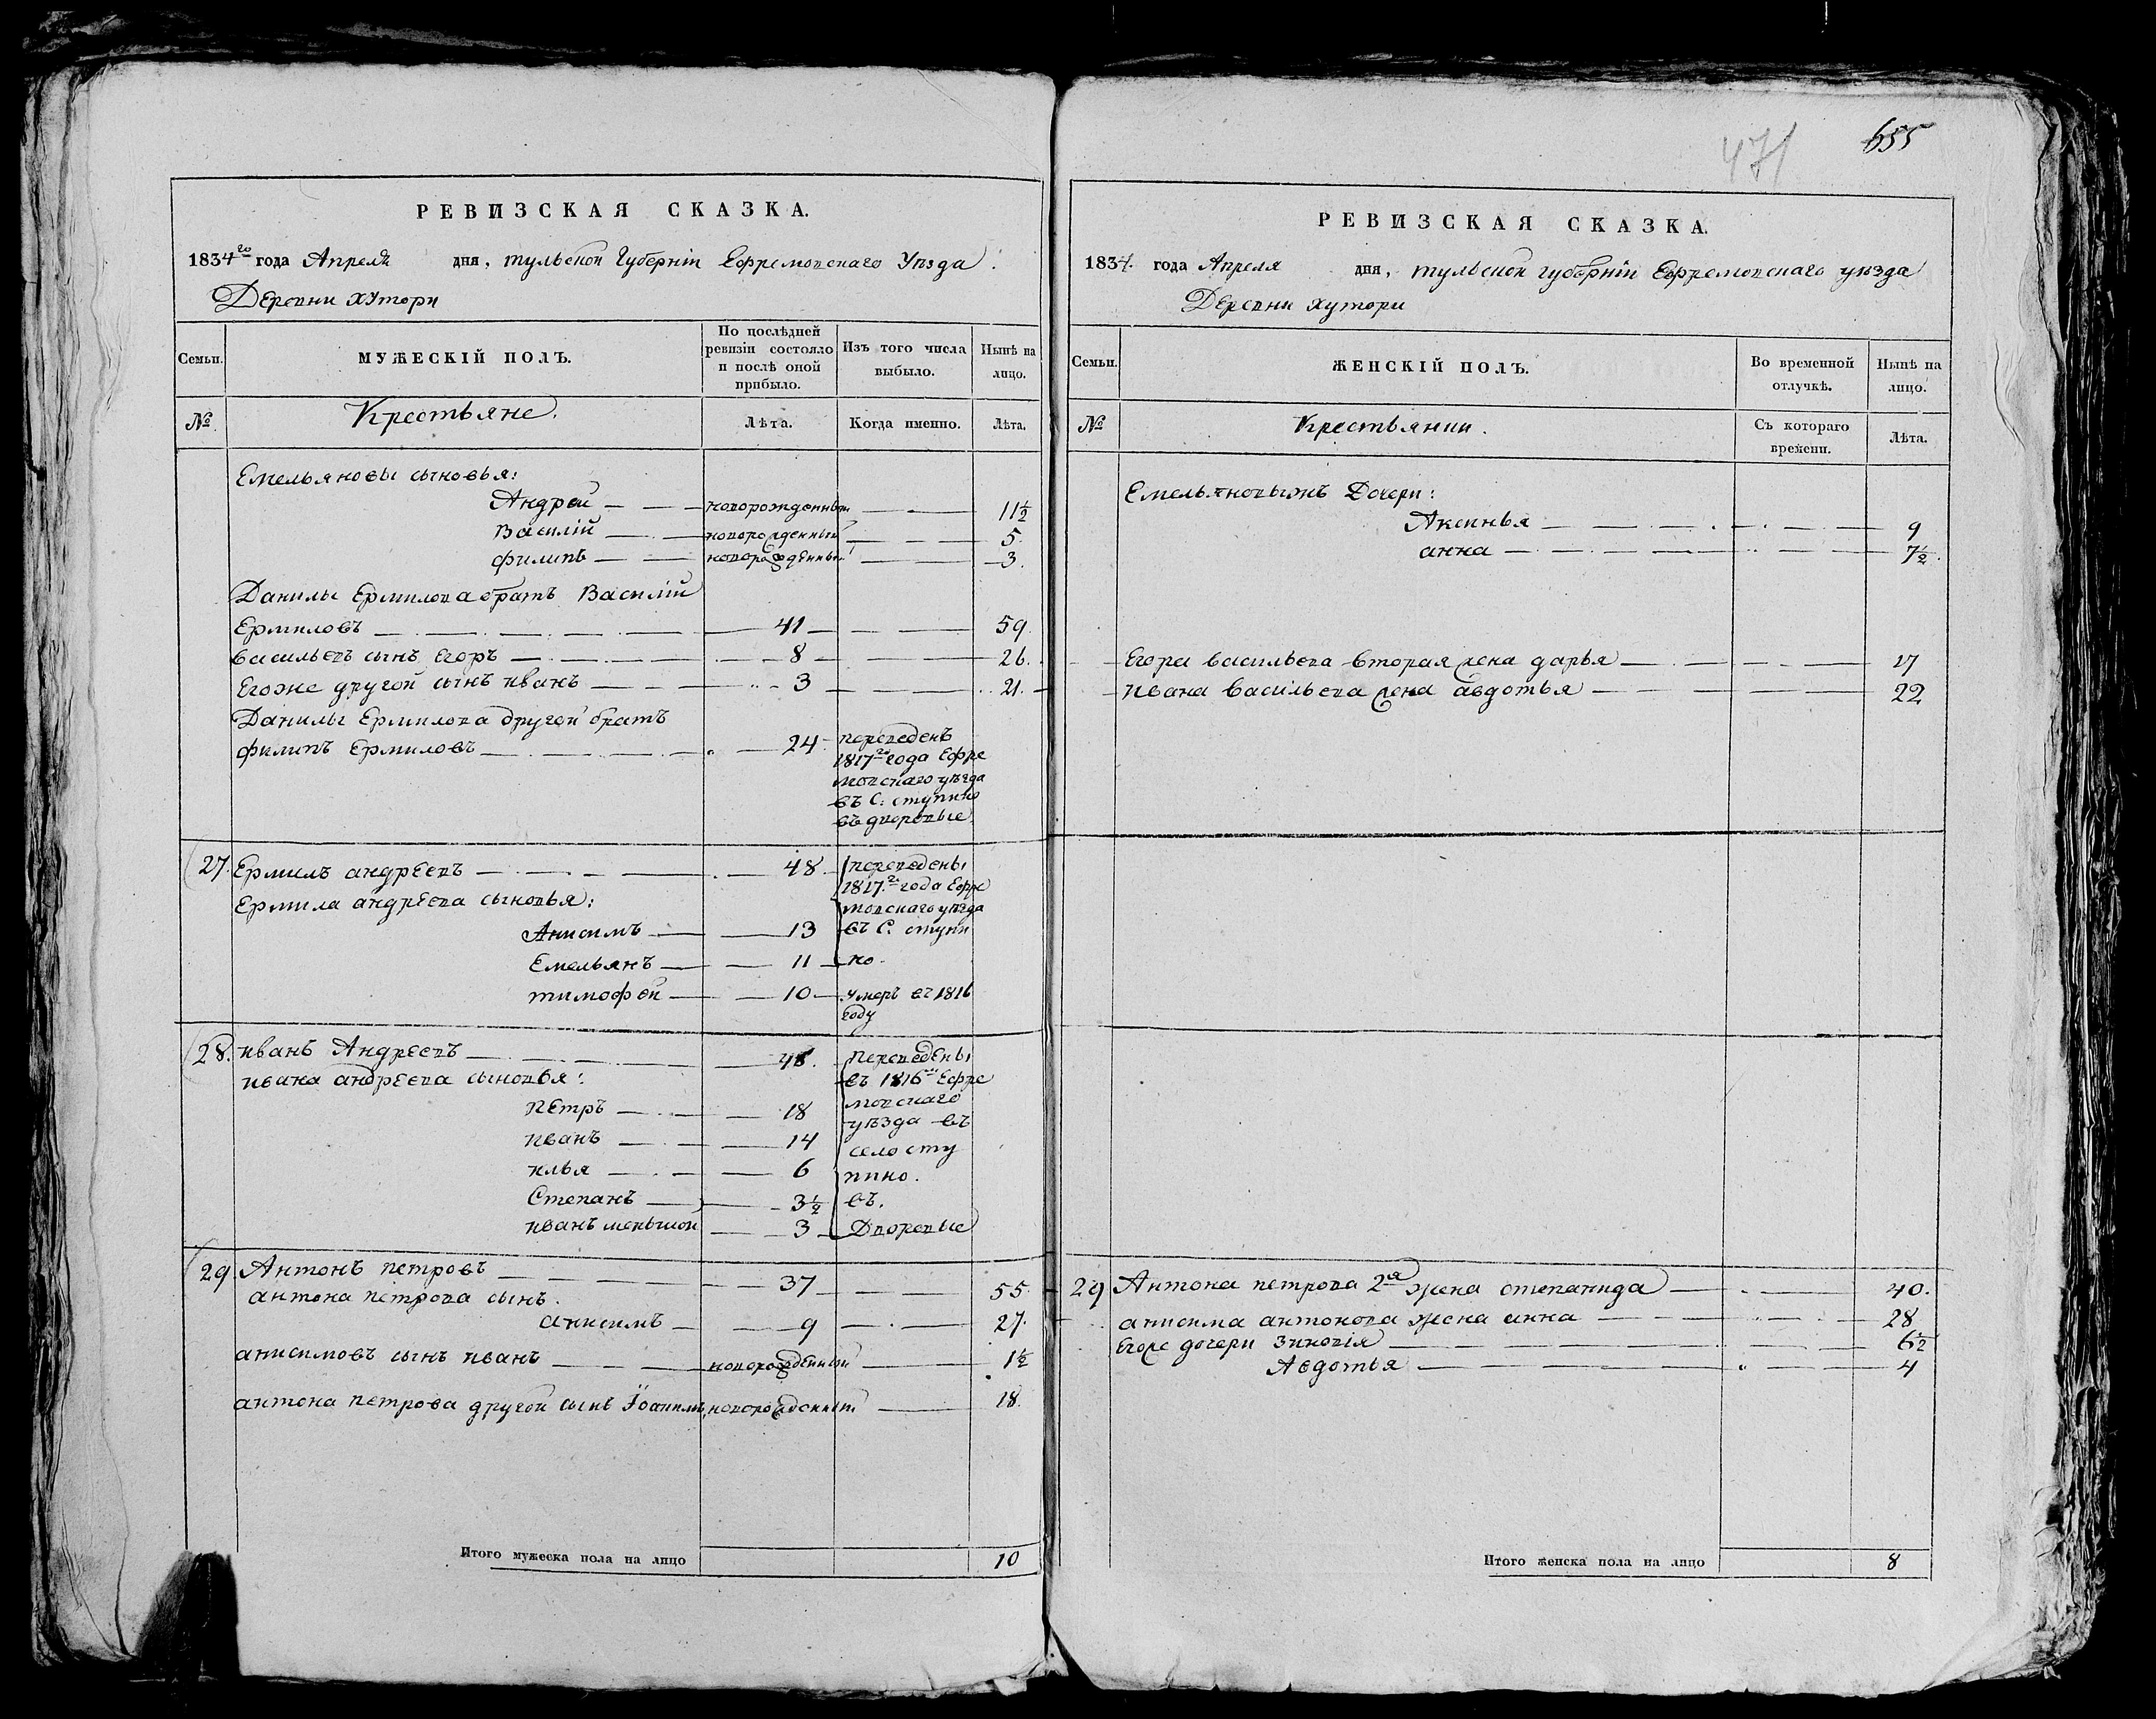 471
655
РЕВИЗСКАЯ СКАЗКА.
1834го года Апреля дня, тульской Губерніи Ефремовскаго Уѣзда.
Деревни хутори
Семьи. МУЖЕСКІЙ ПОЛЪ. По послѣдней ревизіи состояло и послѣ оной прибыло. Изъ того числа выбыло. Нынѣ на лицо.
№ Крестьяне. Лѣта. Когда именно. Лѣта.
Емельяновы сыновья:
Андрей — новорожденный — 11½
Василій — новорожденный — 5.
филипъ — новорожденный — 3.
Данилы Ермилова братъ Василій
Ермиловъ — 41 — 59.
васильевъ сынъ Егоръ — 8 — 26.
Егоже другой сынъ иванъ — 3 — 21.
Данилы Ермилова другой братъ
филипъ Ермиловъ — 24. переведенъ
1817го года Ефре
мовскаго уѣзда
въ С. ступино
въ дворовые
27. Ермилъ андреевъ — 48. переведены
1817.го года Ефре
Ермила андреева сыновья: мовскаго уѣзда
Анисимъ — 13 въ С. ступи
Емельянъ — 11 — но.
тимофей — 10 — умеръ въ 1816
году
28. иванъ Андреевъ — 48. переведены
ивана андреева сыновья: въ 1816м Ефре
петръ — 18 мовскаго
уѣзда въ
иванъ — 14 село сту
илья — 6 пино.
Степанъ — 3½ въ.
иванъ меньшой — 3 — Дворовые
29. Антонъ петровъ — 37 — 55.
антона петрова сынъ.
анисимъ — 9 — 27.
анисимовъ сынъ иванъ — новорожденный — 1½
антона петрова другой сынъ Іоакимъ, новорожденный — 18.
Итого мужеска пола на лицо 10
РЕВИЗСКАЯ СКАЗКА.
1834. года Апреля дня, тульской губерніи Ефремовскаго уѣзда
Деревни хутори
Семьи. ЖЕНСКІЙ ПОЛЪ. Во временной отлучкѣ. Нынѣ на лицо.
№ Крестьянки. Съ котораго времени. Лѣта.
Емельяновыхъ Дочери:
Аксинья — 9
анна — 7½.
Егора васильева вторая жена дарья — 17
ивана васильева жена авдотья — 22
29 Антона петрова 2я жена степанида — 40.
анисима антонова жена анна — 28
Егоже дочери Зиновія — 6½
Авдотья — 4
Итого женска пола на лицо 8